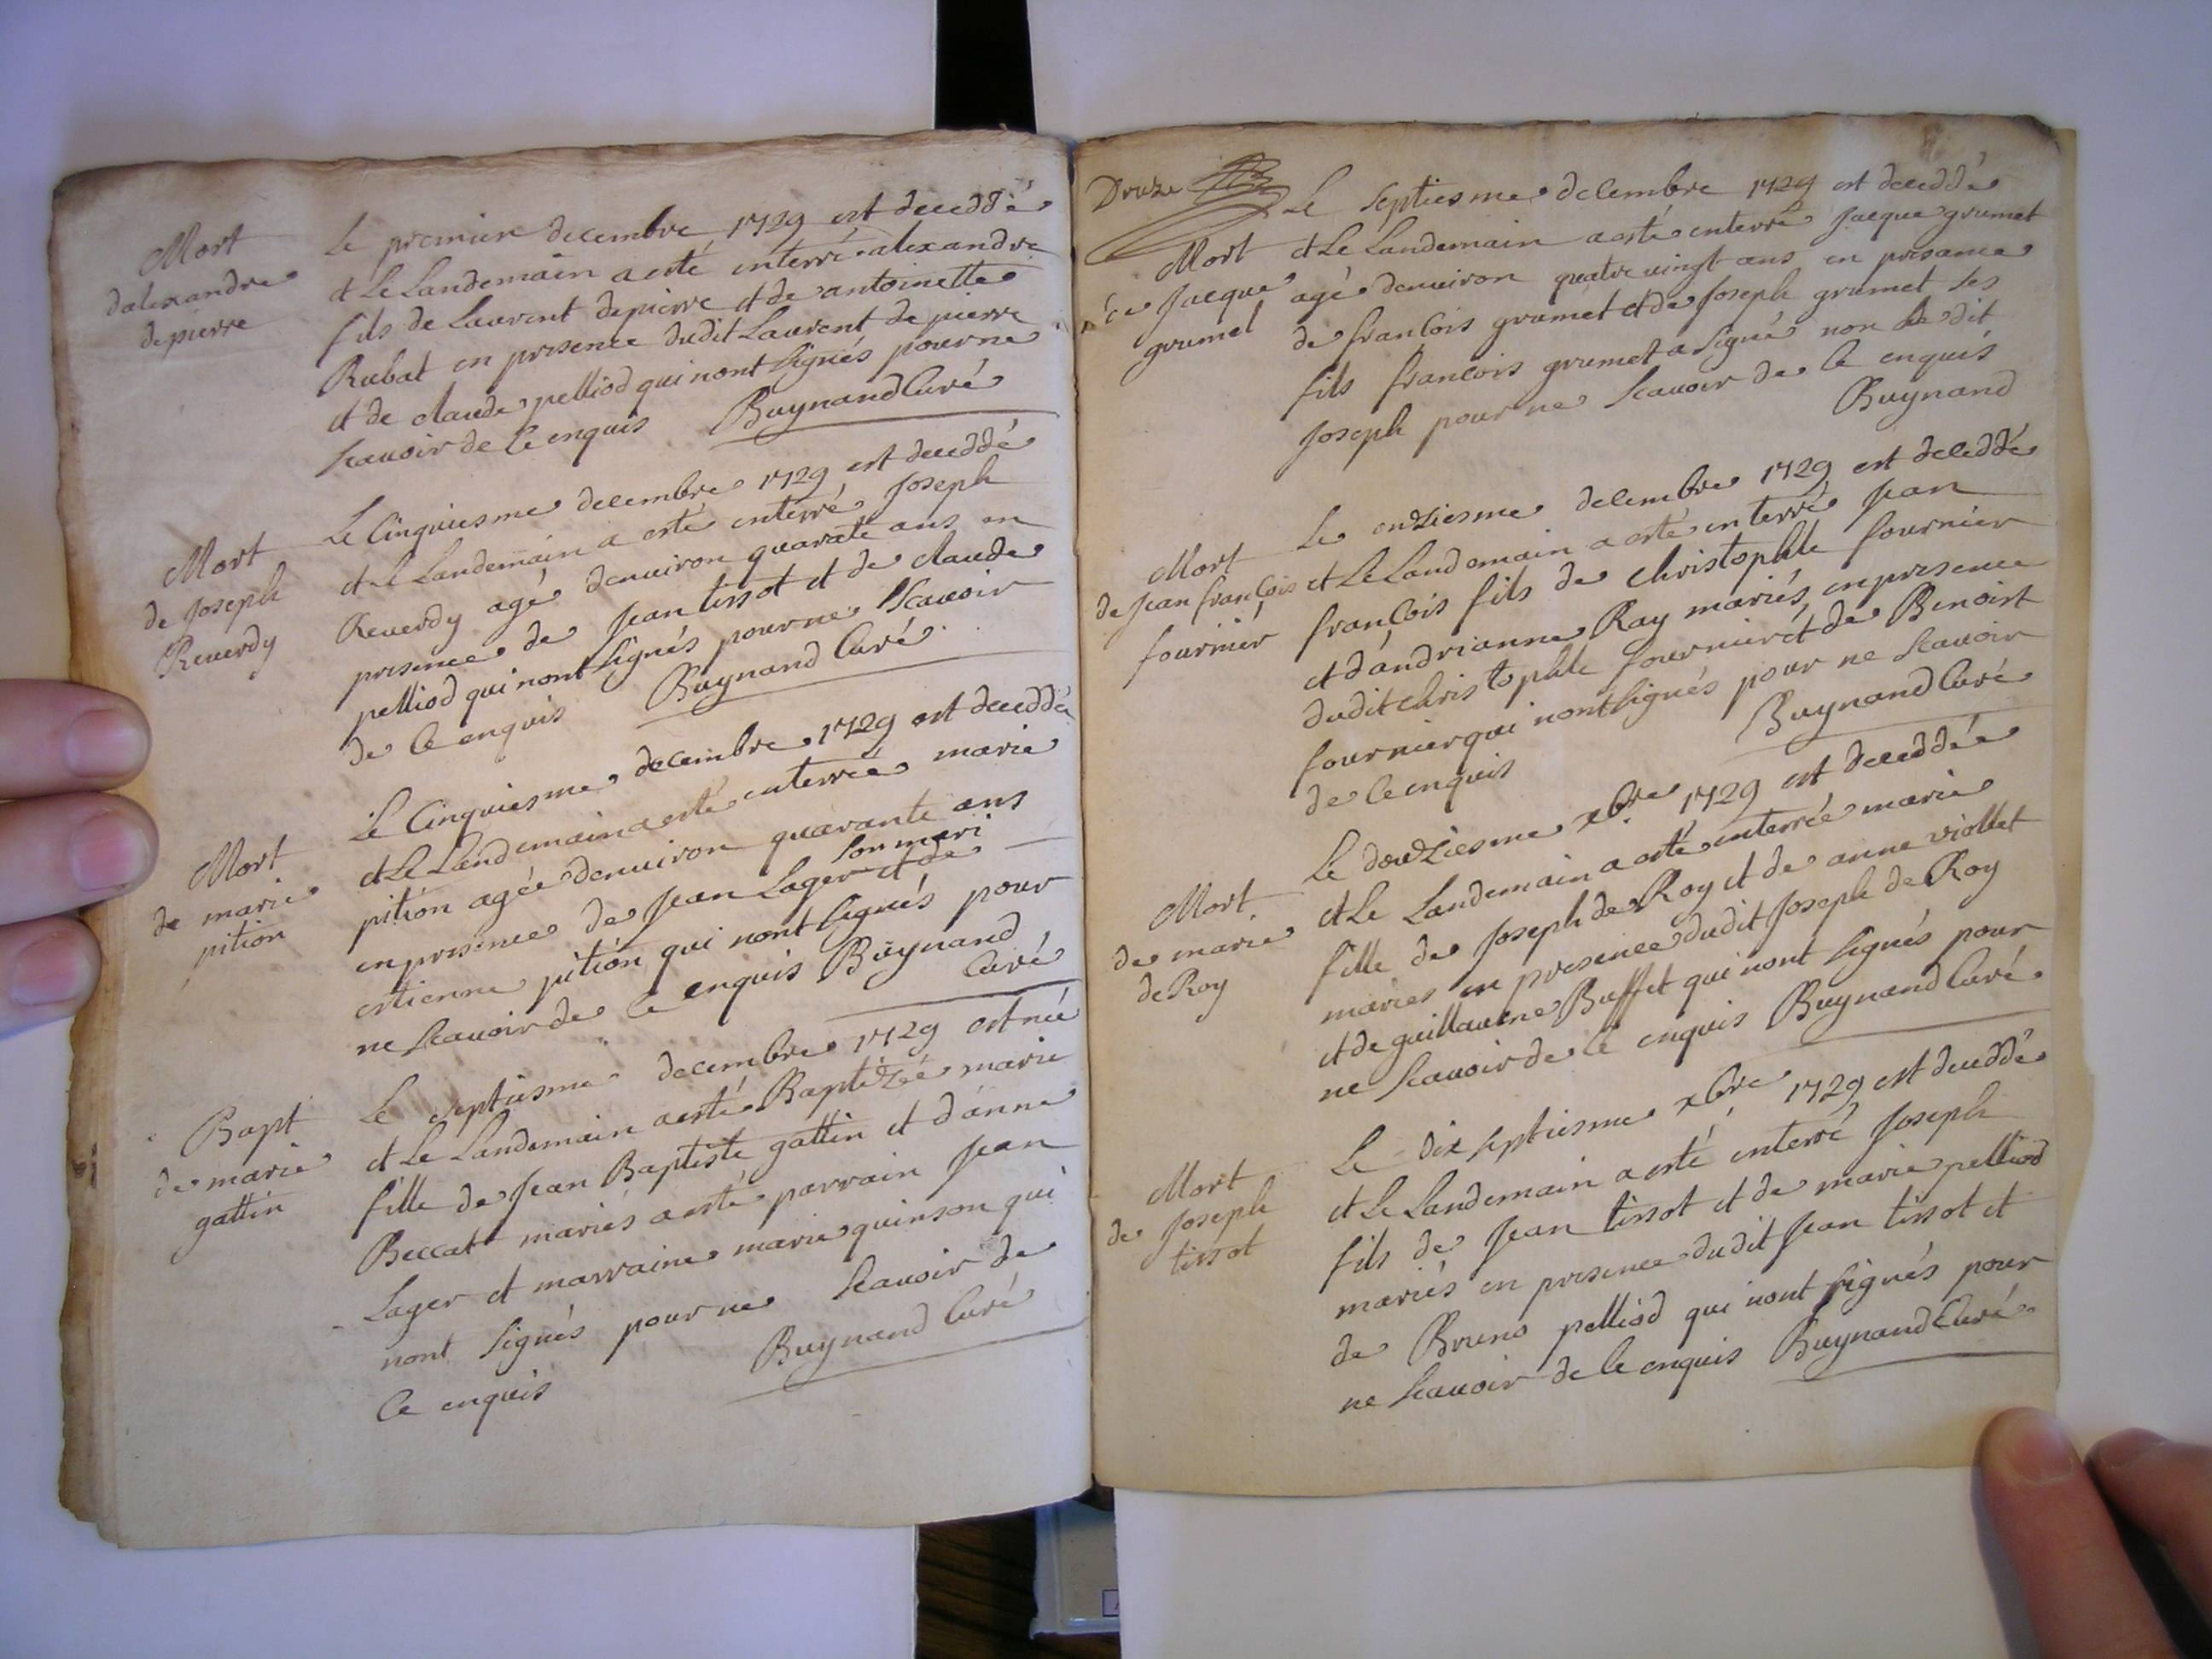 Mort
dalexandre
depierre
Le premier decembre 1729 est deceddé
et Le Landemain a esté interré alexandre
fils de Laurent depierre et de antoinette
Rubat en presence dudit Laurent de pierre
et de claude pelliod qui nont signés pour ne
scauoir de ce enquis Buynand Curé
Mort
de Joseph
Reuerdy
Le Cinquiesme decembre 1729 est deceddé
et L Landemain a esté interré Joseph
Reuerdy agé denuiron quarate ans en
presence de Jean tissot et de claude
pelliod qui nont signés pour ne scauoir
de ce enquis Buynand Curé
Mort
de marie
pition
Le Cinquiesme decembre 1729 est deceddé
et Le Landemain a esté interrée marie
pition agée denuiron quarante ans
son mari
en presence de Jean Lager et de
estienne pition qui nont signés pour
ne scauoir de ce enquis Buynand
Curé
Bapt
de marie
gattin
Le septiesme decembre 1729 est née
et Le Landemain a esté Baptizée marie
fille de Jean Baptiste gattin et d'anne
Beccat mariés a esté parrain Jean
Lager et marraine marie quinson qui
nont signés pour ne scauoir de
ce enquis Buynand Curé
Druze
Mort
de Jacque
grumel
Le septiesme decembre 1729 est deceddé
et Le Landemain a esté enterré Jacque grumet
agé denuiron quatre vingt ans en presance
de francois grumet et de Joseph grumet ses
fils francois grumet a signé non Le dit
Joseph pour ne scauoir de ce enquis
Buynand
Mort
de Jean francois
fournier
Le onziesme decembre 1729 est deceddé
et Le Landemain a esté interré Jean
francois fils de christophle fournier
et d'andrianne Ray mariés en presence
dudit christophle fournier et de Benoist
fournier qui nont signés pour ne scauoir
de ce enquis Buynand Curé
Mort
de marie
de Roy
Le douziesme xbre 1729 est deceddée
et Le Landemain a esté interrée marie
fille de Joseph de Roy et de anne viollet
mariés en presence dudit Joseph de Roy
et de guillaume Buffet qui nont signés pour
ne scauoir de ce enquis Buynand Curé
Mort
de Joseph
tissot
Le dix septiesme xbre 1729 est deceddé
et Le Landemain a esté interré Joseph
fils de Jean tissot et de marie pelliod
mariés en presence dudit Jean tissot et
de Bruno pelliod qui nont signés pour
ne scauoir de ce enquis Buynand Curé